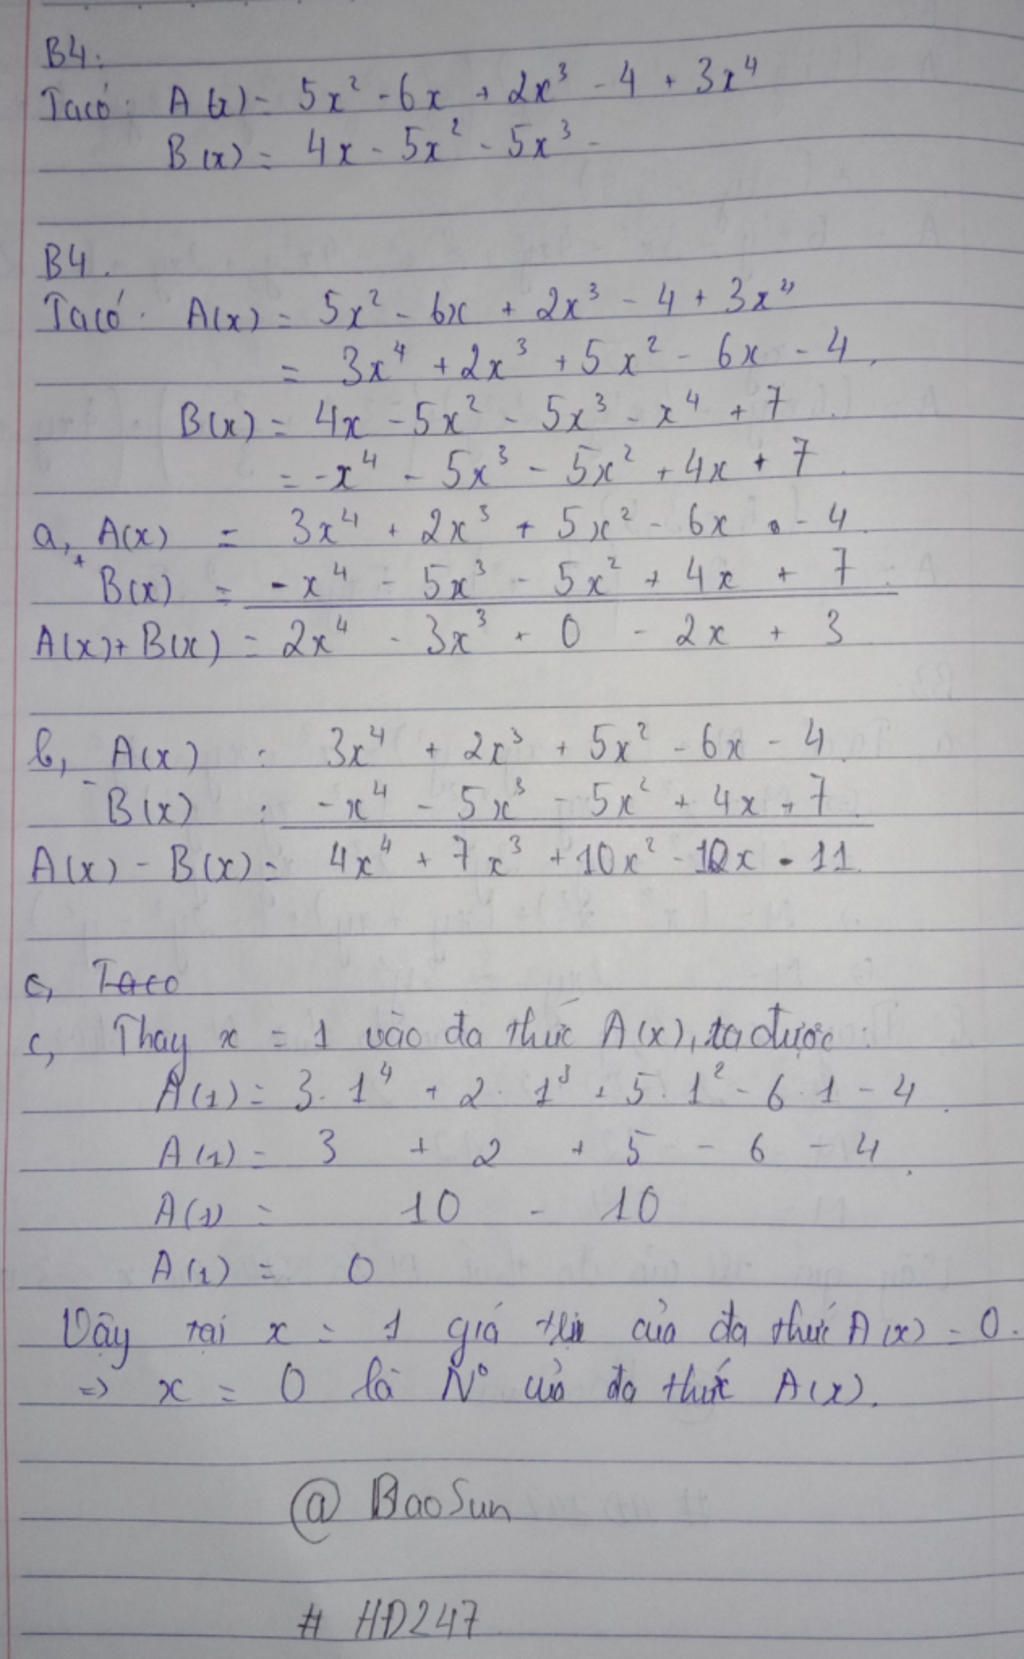 B4:
Ta có: A(x) = 5x² - 6x + 2x³ - 4 + 3x⁴
B(x) = 4x - 5x² - 5x³ -
B4.
Ta có: A(x) = 5x² - 6x + 2x³ - 4 + 3x⁴
= 3x⁴ + 2x³ + 5x² - 6x - 4.
B(x) = 4x - 5x² - 5x³ - x⁴ + 7
= -x⁴ - 5x³ - 5x² + 4x + 7.
a, A(x) = 3x⁴ + 2x³ + 5x² - 6x - 4.
+ B(x) = -x⁴ - 5x³ - 5x² + 4x + 7.
A(x) + B(x) = 2x⁴ - 3x³ + 0 - 2x + 3
b, A(x) : 3x⁴ + 2x³ + 5x² - 6x - 4.
- B(x) : -x⁴ - 5x³ - 5x² + 4x + 7.
A(x) - B(x) = 4x⁴ + 7x³ + 10x² - 10x - 11.
c, Taco
c, Thay x = 1 vào đa thức A(x), ta được:
A(1) = 3.1⁴ + 2.1³ + 5.1² - 6.1 - 4.
A(1) = 3 + 2 + 5 - 6 - 4.
A(1) = 10 - 10
A(1) = 0
Vậy tại x = 1 giá trị của đa thức A(x) = 0.
=> x = 0 là N° của đa thức A(x).
@ BaoSun
# HĐ247